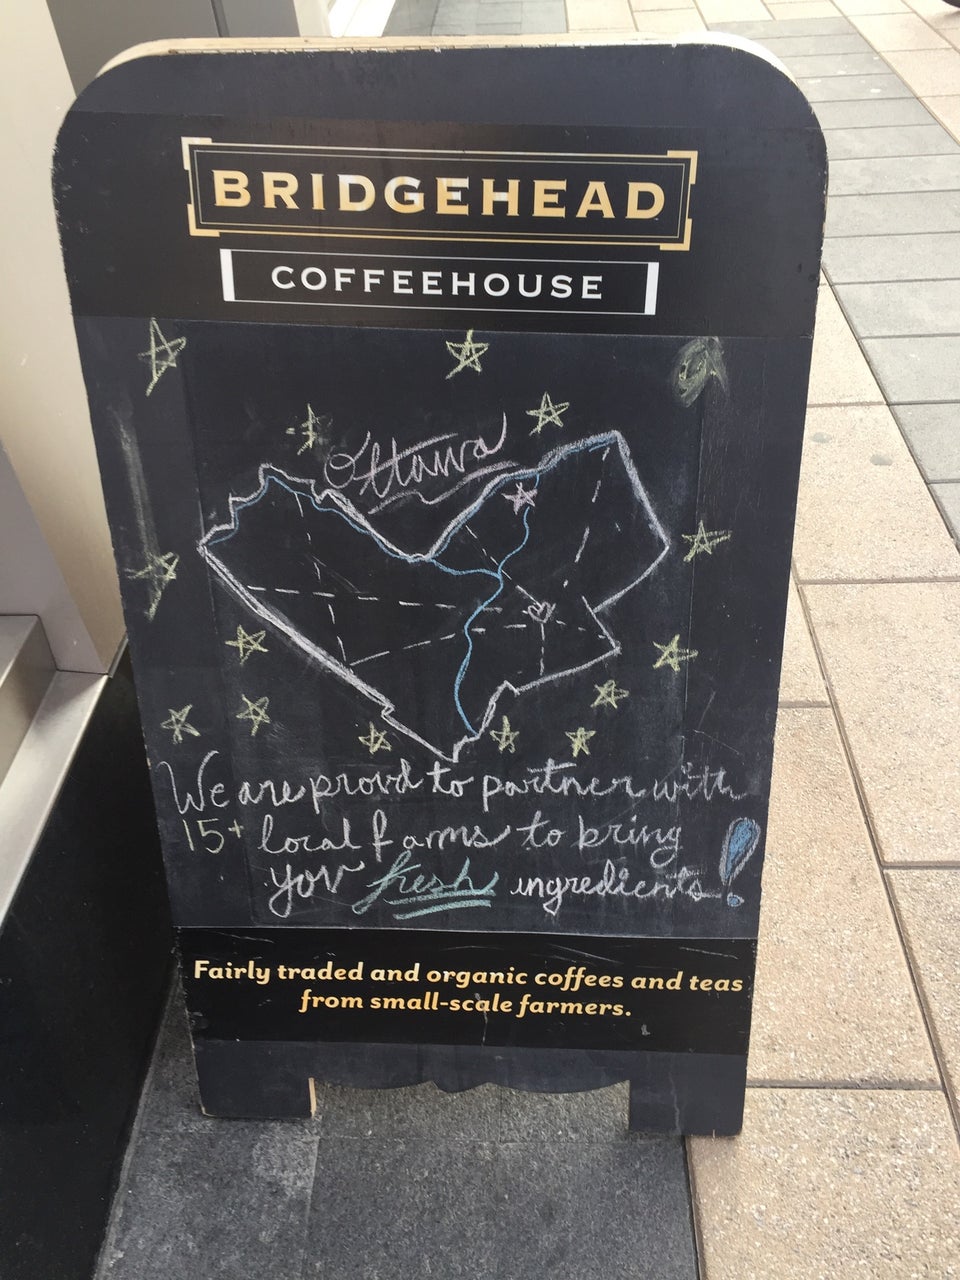 BRIDGEHEAD
COFFEEHOUSE
Ottawa
We are proud to partner with
15+ local farms to bring
you fresh ingredients!
Fairly traded and organic coffees and teas
from small-scale farmers.